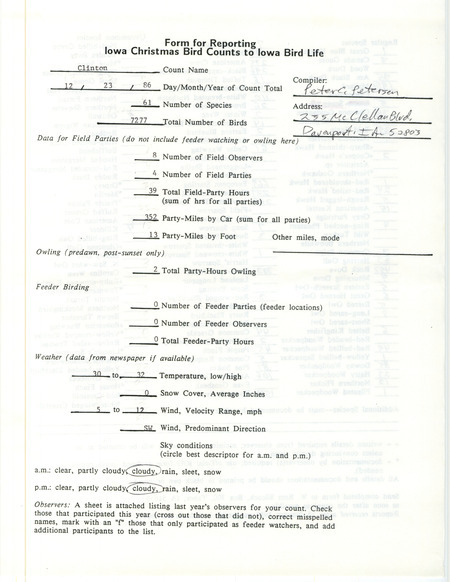 Form for Reporting
Iowa Christmas Bird Counts to Iowa Bird Life
Clinton Count Name
12 / 23 / 86 Day/Month/Year of Count Total
Compiler:
Peter C. Petersen
61 Number of Species
Address:
235 McClellan Blvd,
7277 Total Number of Birds
Davenport, IA 52803
Data for Field Parties (do not include feeder watching or owling here)
8 Number of Field Observers
4 Number of Field Parties
39 Total Field-Party Hours
(sum of hrs for all parties)
352 Party-Miles by Car (sum for all parties)
13 Party-Miles by Foot Other miles, mode
Owling (predawn, post-sunset only)
2 Total Party-Hours Owling
Feeder Birding
0 Number of Feeder Parties (feeder locations)
0 Number of Feeder Observers
0 Total Feeder-Party Hours
Weather (data from newspaper if available)
30 to 32 Temperature, low/high
0 Snow Cover, Average Inches
5 to 12 Wind, Velocity Range, mph
SW Wind, Predominant Direction
Sky conditions
(circle best descriptor for a.m. and p.m.)
a.m.: clear, partly cloudy, cloudy, rain, sleet, snow
p.m.: clear, partly cloudy, cloudy, rain, sleet, snow
Observers: A sheet is attached listing last year's observers for your count. Check
those that participated this year (cross out those that did not), correct misspelled
names, mark with an "f" those that only participated as feeder watchers, and add
additional participants to the list.